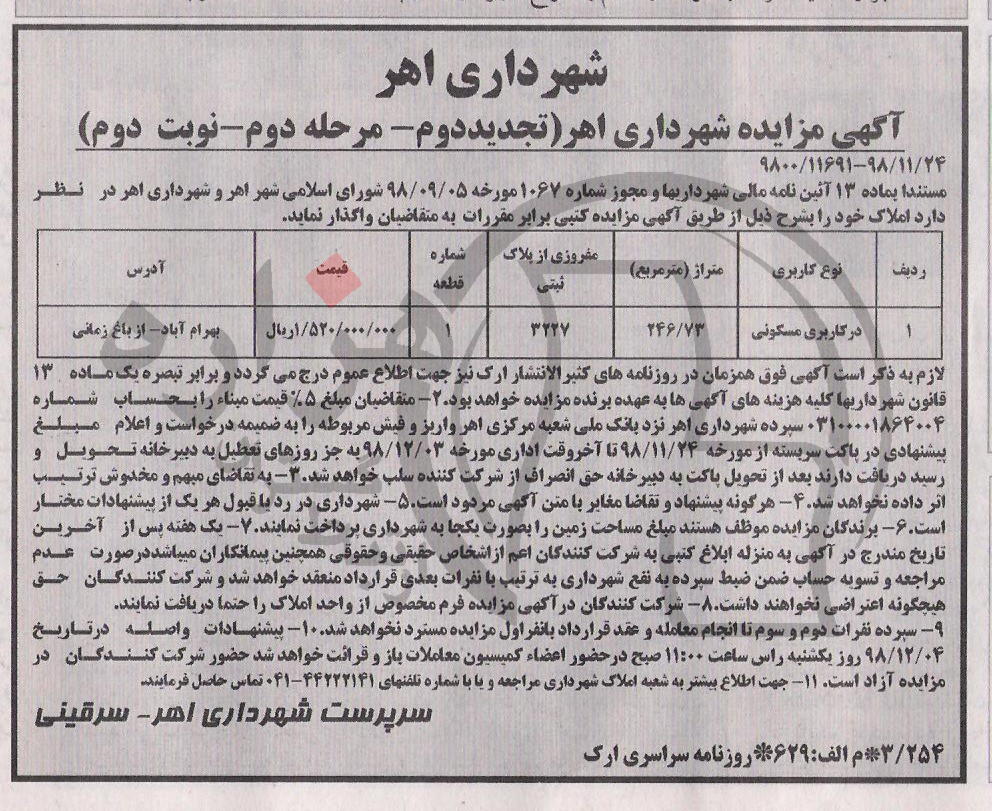 شهرداری اهر
آگهی مزایده شهرداری اهر(تجدیددوم- مرحله دوم-نوبت دوم)
۹۸۰۰/۱۱۶۹۱-۹۸/۱۱/۲۴
مستندا بماده ۱۳ آئین نامه مالی شهرداریها و مجوز شماره ۱۰۶۷ مورخه ۹۸/۰۹/۰۵ شورای اسلامی شهر اهر و شهرداری اهر در نظر
دارد املاک خود را بشرح ذیل از طریق آگهی مزایده کتبی برابر مقررات به متقاضیان واگذار نماید.
ردیف نوع کاربری متراژ (مترمربع) مفروزی از پلاک ثبتی شماره قطعه قیمت آدرس
۱ درکاربری مسکونی ۲۴۶/۷۳ ۳۲۲۷ ۱ ۱/۵۲۰/۰۰۰/۰۰۰ریال بهرام آباد- از باغ زمانی
لازم به ذکر است آگهی فوق همزمان در روزنامه های کثیر الانتشار ارک نیز جهت اطلاع عموم درج می گردد و برابر تبصره یک ماده ۱۳
قانون شهرداریها کلیه هزینه های آگهی ها به عهده برنده مزایده خواهد بود.۲- متقاضیان مبلغ ۵٪ قیمت مبناء را بحساب شماره
۰۳۱۰۰۰۰۱۸۶۴۰۰۴ سپرده شهرداری اهر نزد بانک ملی شعبه مرکزی اهر واریز و فیش مربوطه را به ضمیمه درخواست و اعلام مبلغ
پیشنهادی در پاکت سربسته از مورخه ۹۸/۱۱/۲۴ تا آخروقت اداری مورخه ۹۸/۱۲/۰۳ به جز روزهای تعطیل به دبیرخانه تحویل و
رسید دریافت دارند بعد از تحویل پاکت به دبیرخانه حق انصراف از شرکت کننده سلب خواهد شد.۳- به تقاضای مبهم و مخدوش ترتیب
اثر داده نخواهد شد.۴- هرگونه پیشنهاد و تقاضا مغایر با متن آگهی مردود است.۵- شهرداری در رد یا قبول هر یک از پیشنهادات مختار
است.۶- برندگان مزایده موظف هستند مبلغ مساحت زمین را بصورت یکجا به شهرداری پرداخت نمایند.۷- یک هفته پس از آخرین
تاریخ مندرج در آگهی به منزله ابلاغ کتبی به شرکت کنندگان اعم ازاشخاص حقیقی وحقوقی همچنین پیمانکاران میباشددرصورت عدم
مراجعه و تسویه حساب ضمن ضبط سپرده به نفع شهرداری به ترتیب با نفرات بعدی قرارداد منعقد خواهد شد و شرکت کنندگان حق
هیچگونه اعتراضی نخواهند داشت.۸- شرکت کنندگان درآگهی مزایده فرم مخصوص از واحد املاک را حتما دریافت نمایند.
۹- سپرده نفرات دوم و سوم تا انجام معامله و عقد قرارداد بانفراول مزایده مسترد نخواهد شد.۱۰- پیشنهادات واصله درتاریخ
۹۸/۱۲/۰۴ روز یکشنبه راس ساعت ۱۱:۰۰ صبح درحضور اعضاء کمیسیون معاملات باز و قرائت خواهد شد حضور شرکت کنندگان در
مزایده آزاد است. ۱۱- جهت اطلاع بیشتر به شعبه املاک شهرداری مراجعه و یا با شماره تلفنهای ۴۴۲۲۲۱۴۱-۰۴۱ تماس حاصل فرمایند.
سرپرست شهرداری اهر- سرقینی
۳/۲۵۴*م الف:۶۲۹*روزنامه سراسری ارک
هزاره